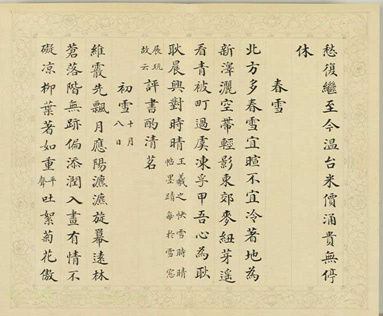 愁復繼至今温台米價涌貴無停
休
春雪
北方多春雪宜暄不宜冷著地為
新澤灑空帶輕影東郊麥紐芽遙
看青被町過虞凍孚甲吾心為耿
耿晨興對時晴王羲之快雪時晴
帖墨蹟每於雪窓
展玩
故云評書酌清茗
初雪十月
八日
維霰先飄月應陽漉漉旋冪遠林
蒼落階無跡偏添潤入畫有情不
礙凉柳葉著如重平
聲吐絮菊花傲